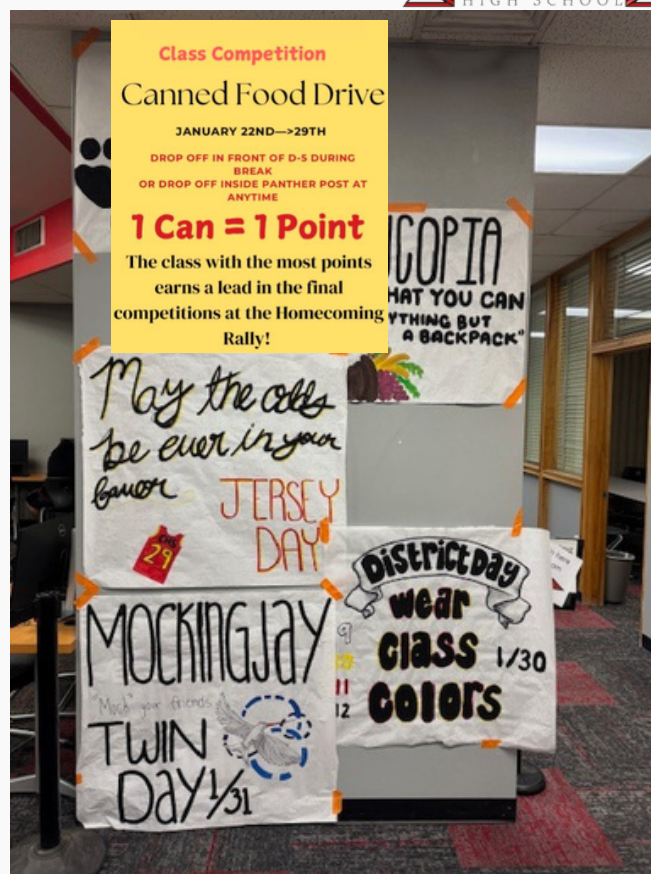 HIGH SCHOOL
Class Competition
Canned Food Drive
JANUARY 22ND—>29TH
DROP OFF IN FRONT OF D-5 DURING
BREAK
OR DROP OFF INSIDE PANTHER POST AT
ANYTIME
1 Can = 1 Point
The class with the most points
earns a lead in the final
competitions at the Homecoming
Rally!
UCOPIA
HAT YOU CAN
YTHING BUT
A BACKPACK"
May the odds
be ever in your
favor
JERSEY
DAY
CHS
29
District Day
wear
class
colors
1/30
9
10
11
12
MOCKINGJAY
"Mock" your friends
TWIN
DAY 1/31